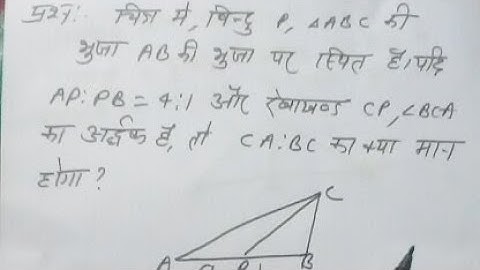 प्रश्न:- चित्र में, बिन्दु P, △ABC की
भुजा AB की भुजा पर स्थित है। यदि
AP:PB = 4:1 और रेखाखण्ड CP, ∠BCA
का अर्द्धक है, तो CA:BC का क्या मान
होगा?
C
A P B